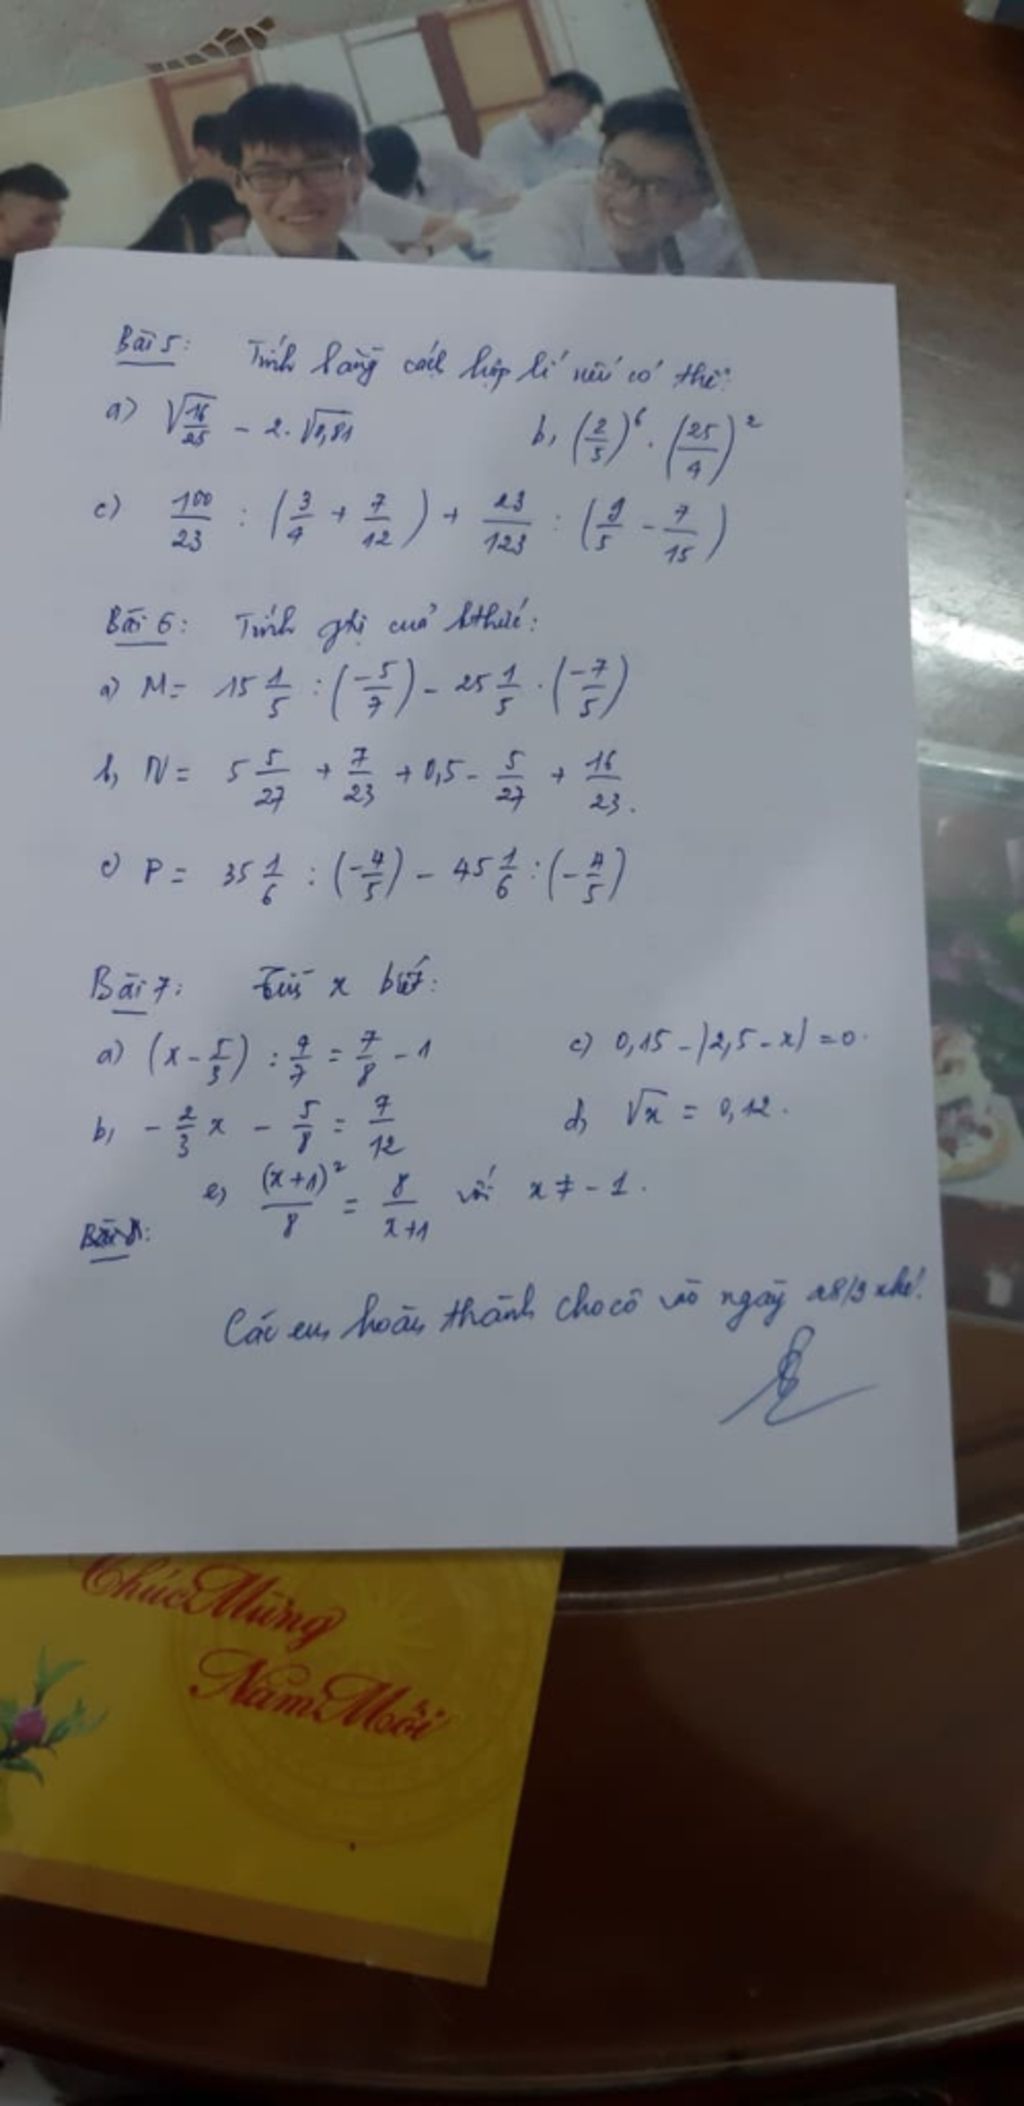 Bài 5: Tính bằng cách hợp lí nếu có thể:
a) √(16/25) - 2.√0,81 b, (2/5)^6 . (25/4)^2
c) 100/23 : (3/4 + 7/12) + 23/123 : (9/5 - 7/15)
Bài 6: Tính gtrị của bthức:
a) M = 15 1/5 : (-5/7) - 25 1/5 . (-7/5)
b, N = 5 5/27 + 7/23 + 0,5 - 5/27 + 16/23.
c) P = 35 1/6 : (-4/5) - 45 1/6 : (-4/5)
Bài 7: Tìm x biết:
a) (x - 5/3) : 9/7 = 7/8 - 1 c) 0,15 - |2,5 - x| = 0.
b, -2/3 x - 5/8 = 7/12 d, √x = 0,12.
e, (x+1)^2/8 = 8/(x+1) với x ≠ -1.
Bài 8:
Các em hoàn thành cho cô vào ngày 28/9 nhé!
Chúc Mừng
Năm Mới